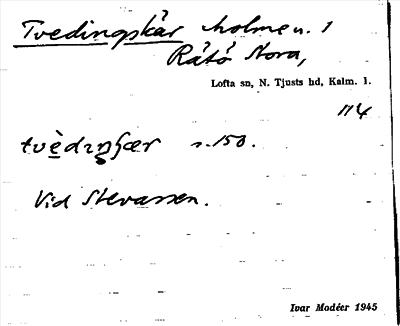 Tvedingskär holme n. 1
Råtö Stora,
Lofta sn, N. Tjusts hd, Kalm. l.
114
s. 150.
Vid Stevassen.
Ivar Modéer 1945